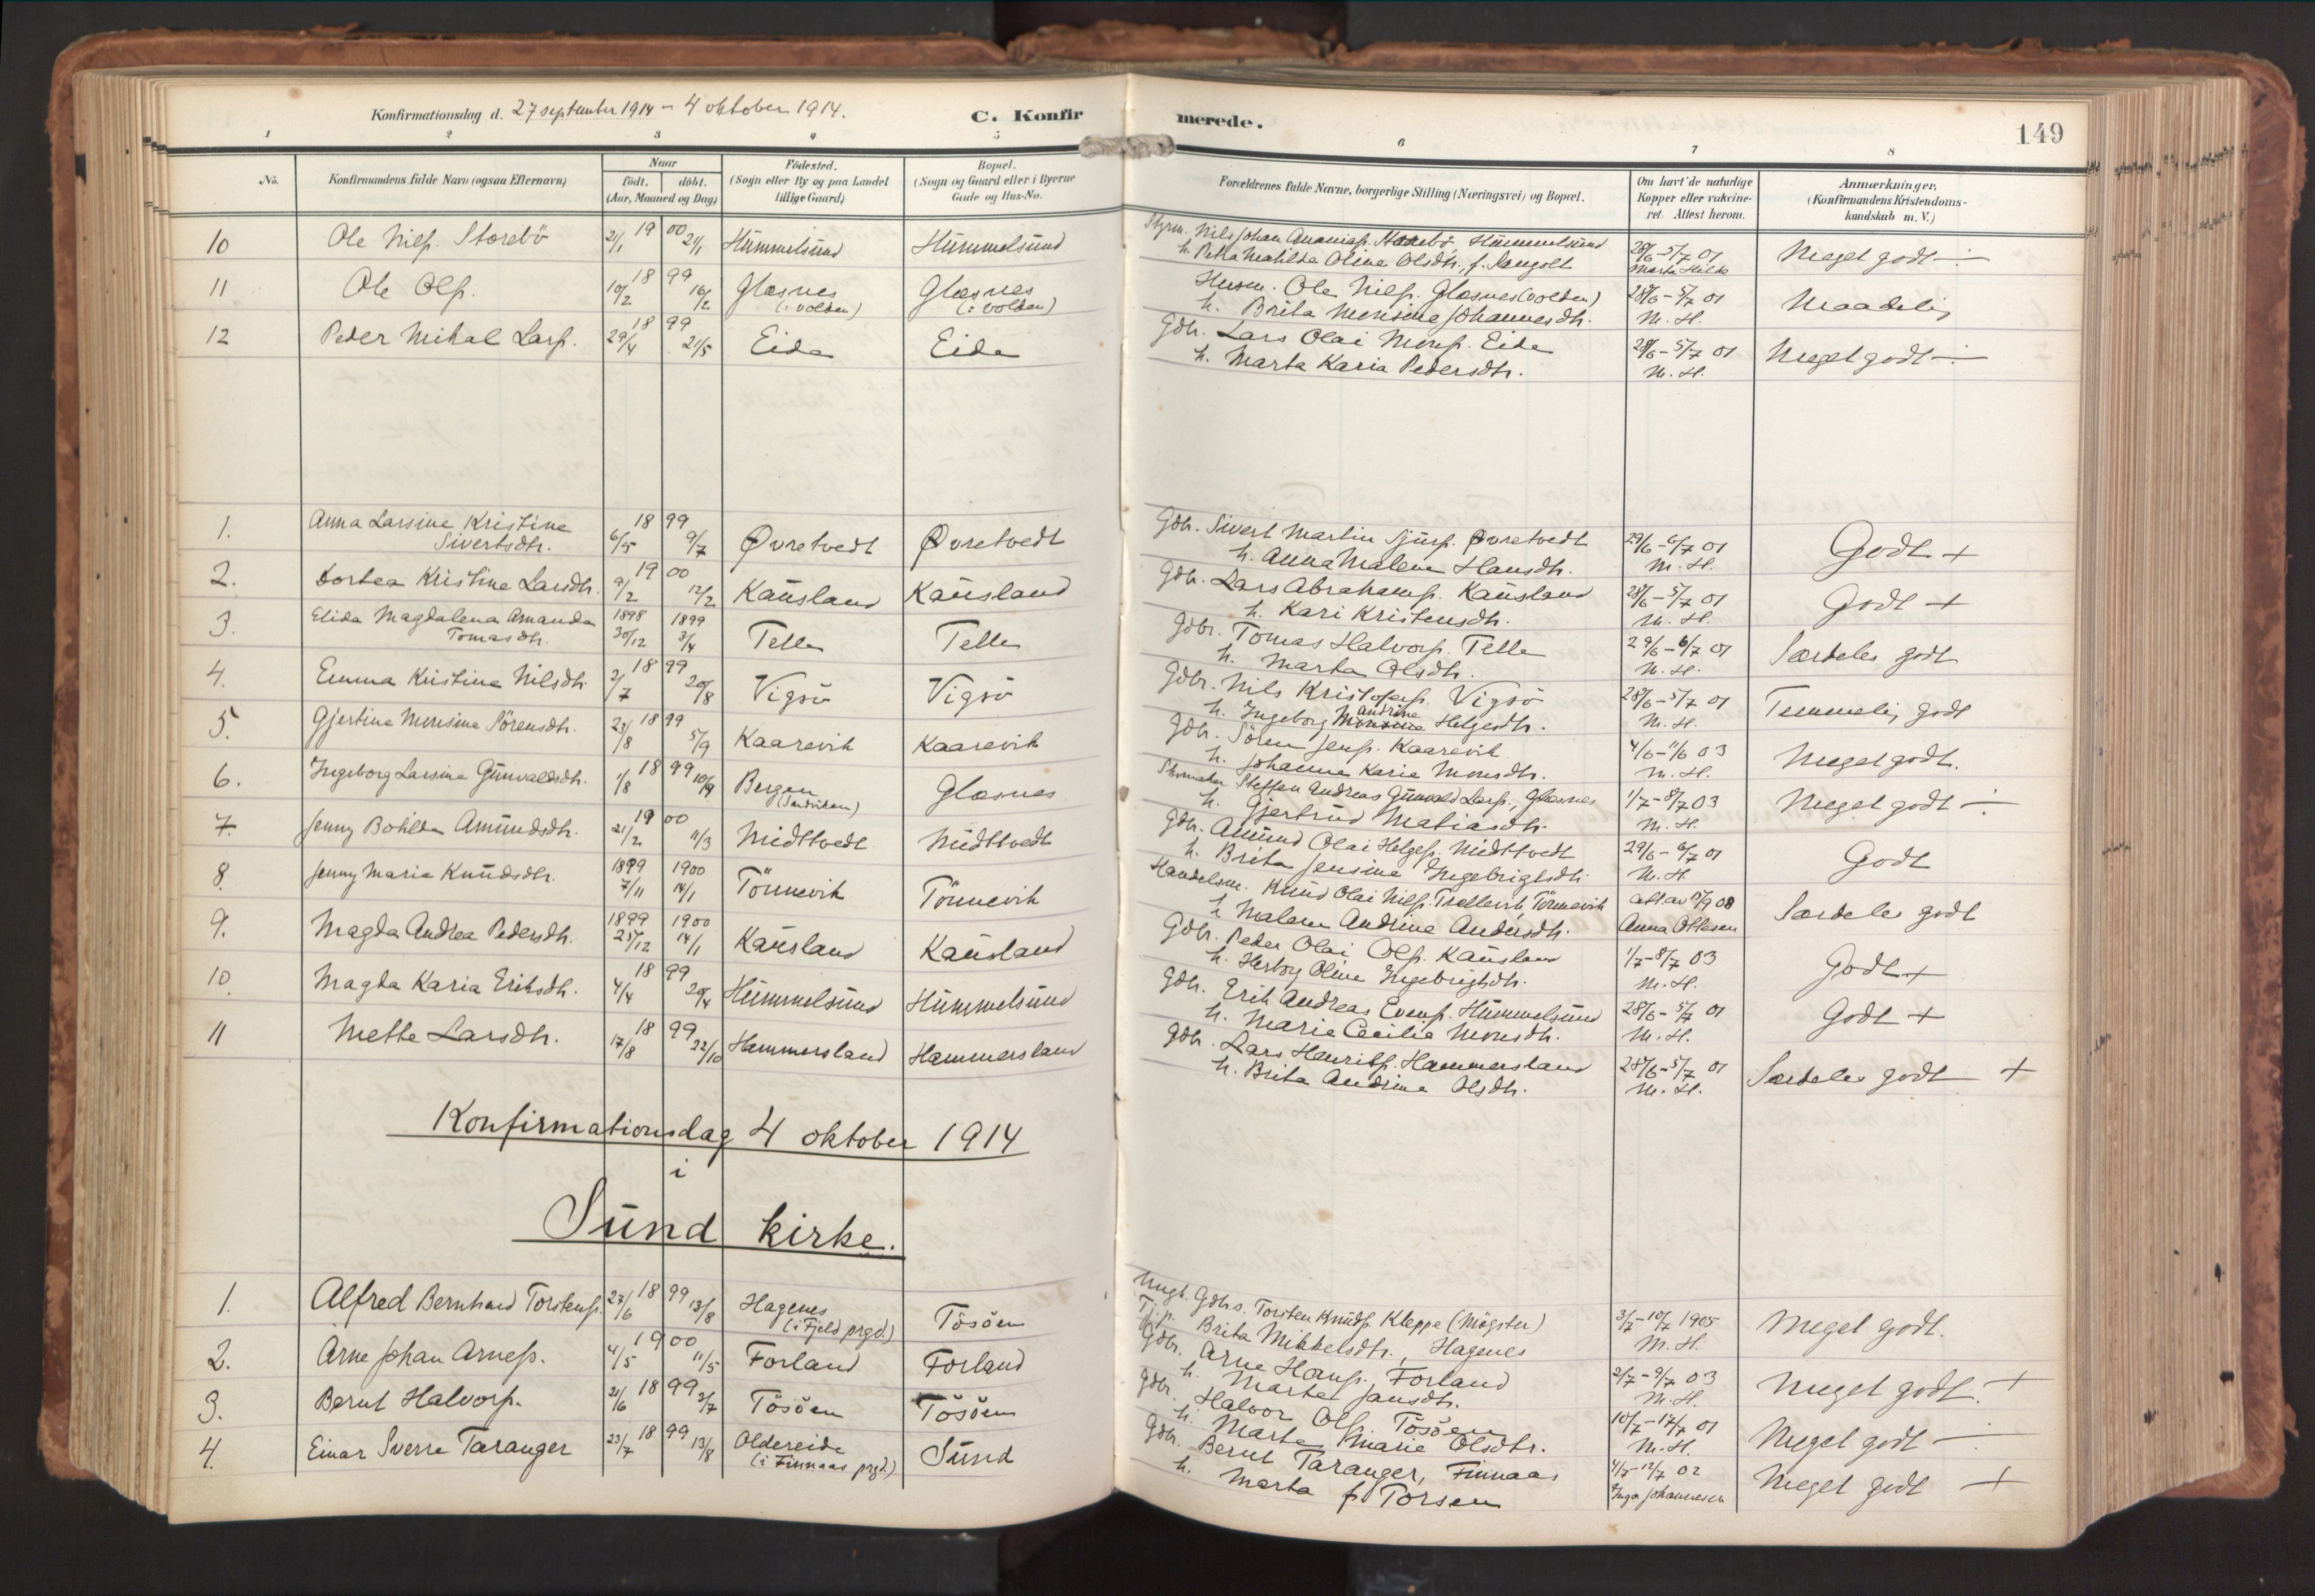 Konfirmationsdag d. 27 september 1914 - 4 oktober 1914.
C. Konfirmerede.
149
1 2 3 4 5 6 7 8
No.
Konfirmandens fulde Navn (ogsaa Efternavn)
Naar
født. døbt.
(Aar, Maaned og Dag)
Födested.
(Sogn eller By og paa Landet
tillige Gaard)
Bopæl.
(Sogn og Gaard eller i Byerne
Gade og Hus-No.
Forældrenes fulde Navne, borgerlige Stilling (Næringsvei) og Bopæl.
Om havt de naturlige
Kopper eller vakcine-
ret. Attest herom.
Anmærkninger.
(Konfirmandens Kristendoms-
kundskab m. V.)
10 Ole Nilss. Storebö 21/1 1900 21/1 Hummelsund Hummelsund Styrm. Nils Johan Ananiass. Storebö Hummelsund 28/6-5/7 01 Meget godt -:-
h. Petra Matilde Oline Olsdtr., f. Sangolt
11 Ole Olss. 10/2 1899 16/2 Glæsnes (: volden) Glæsnes (: volden) Husm. Ole Nilss. Glæsnes (volden) 28/6-5/7 01 Maadelig
h. Brita Monsine Johannesdtr. M. H.
12 Peder Mikal Larss. 29/4 1899 21/5 Eide Eide Gdbr. Lars Olai Monss. Eide 28/6-5/7 01 Meget godt -:-
h. Marta Karia Pedersdtr. M. H.
1. Anna Larsine Kristine
Sivertsdtr. 6/5 1899 9/7 Øvretvedt Øvretvedt Gdbr. Sivert Martin Sjurs. Øvretvedt 29/6-6/7 01 Godt +
h. Anna Malene Hansdtr. M. H.
2. Dortea Kristine Larsdtr. 9/2 1900 12/2 Kausland Kausland Gdbr. Lars Abrahams. Kausland 28/6-5/7 01 Godt +
h. Kari Kristensdtr. M. H.
3. Elida Magdalena Amanda
Tomasdtr. 1898 30/12 1899 3/4 Telle Telle Gdbr. Tomas Halvors. Telle 29/6-6/7 01 Særdeles godt
h. Marta Olsdtr. M. H.
4. Emma Kristine Nilsdtr. 2/7 1899 20/8 Vigsö Vigsö Gdbr. Nils Kristofers. Vigsö 28/6-5/7 01 Temmelig godt
h. Ingeborg Monsine Andrine Helgesdtr. M. H.
5. Gjertine Monsine Sörensdtr. 23/8 1899 5/9 Kaarevik Kaarevik Gdbr. Sören Jenss. Kaarevik 4/6-11/6 03 Meget godt.
h. Johanna Karia Monsdtr. M. H.
6. Ingeborg Larsine Gunvaldsdtr. 1/8 1899 10/9 Bergen (Sandviken) Glæsnes Skomaker Steffen Andreas Gunvald Larss., Glæsnes 1/7-8/7 03 Meget godt -:-
h. Gjertrud Matiasdtr. M. H.
7 Jenny Bothilda Amundsdtr. 21/2 1900 11/3 Midttvedt Midttvedt Gdbr. Amund Olai Helges. Midttvedt 29/6-6/7 01 Godt
h. Brita Jensine Ingebrigtsdtr. M. H.
8. Jenny Marie Knudsdtr. 1899 7/11 1900 14/1 Tönnevik Tönnevik Handelsm. Knud Olai Nilss. Trellevik, Tönnevik Særdeles godt
h. Malene Andrine Andersdtr. Anna Ottesen
9. Magda Andrea Pedersdtr. 1899 25/12 1900 14/1 Kausland Kausland Gdbr. Peder Olai Olss. Kausland 1/7-8/7 03 Godt +
h. Herborg Oline Ingebrigtsdtr. M. H.
10 Magda Karia Eriksdtr. 4/4 1899 20/4 Hummelsund Hummelsund Gdbr. Erik Andreas Evens. Hummelsund 28/6-5/7 01 Godt +
h. Marie Cecilie Monsdtr. M. H.
11 Mette Larsdtr. 17/8 1899 22/10 Hammersland Hammersland Gdbr. Lars Henriks. Hammersland 28/6-5/7 01 Særdeles godt +
h. Brita Andrine Olsdtr. M. H.
Konfirmationsdag 4 oktober 1914
i
Sund kirke.
1. Alfred Bernhard Torstenss. 27/6 1899 13/8 Hagenes (i Fjeld prgd.) Tösöen Ungk. Gdbrs. Torsten Knuds. Kleppe (Mögster) 3/7-10/7 1905 Meget godt.
Tj.p. Brita Mikkelsdtr., Hagenes M. H.
2. Arne Johan Arness. 4/5 1900 11/5 Forland Forland Gdbr. Arne Hanss. Forland 2/7-9/7 03 Meget godt. +
h. Marta Jansdtr. M. H.
3. Bernt Halvorss. 21/6 1899 2/7 Tösöen Tösöen Gdbr. Halvor Olss. Tösöen 10/7-17/7 01 Meget godt -:-
h. Marta Marie Olsdtr. M. H.
4. Einar Sverre Taranger 23/7 1899 13/8 Oldereide (i Finnaas prgd.) Sund Gdbr. Bernt Taranger, Finnaas 4/7-12/7 02 Meget godt +
h. Marta f. Torsen Inga Johannesen